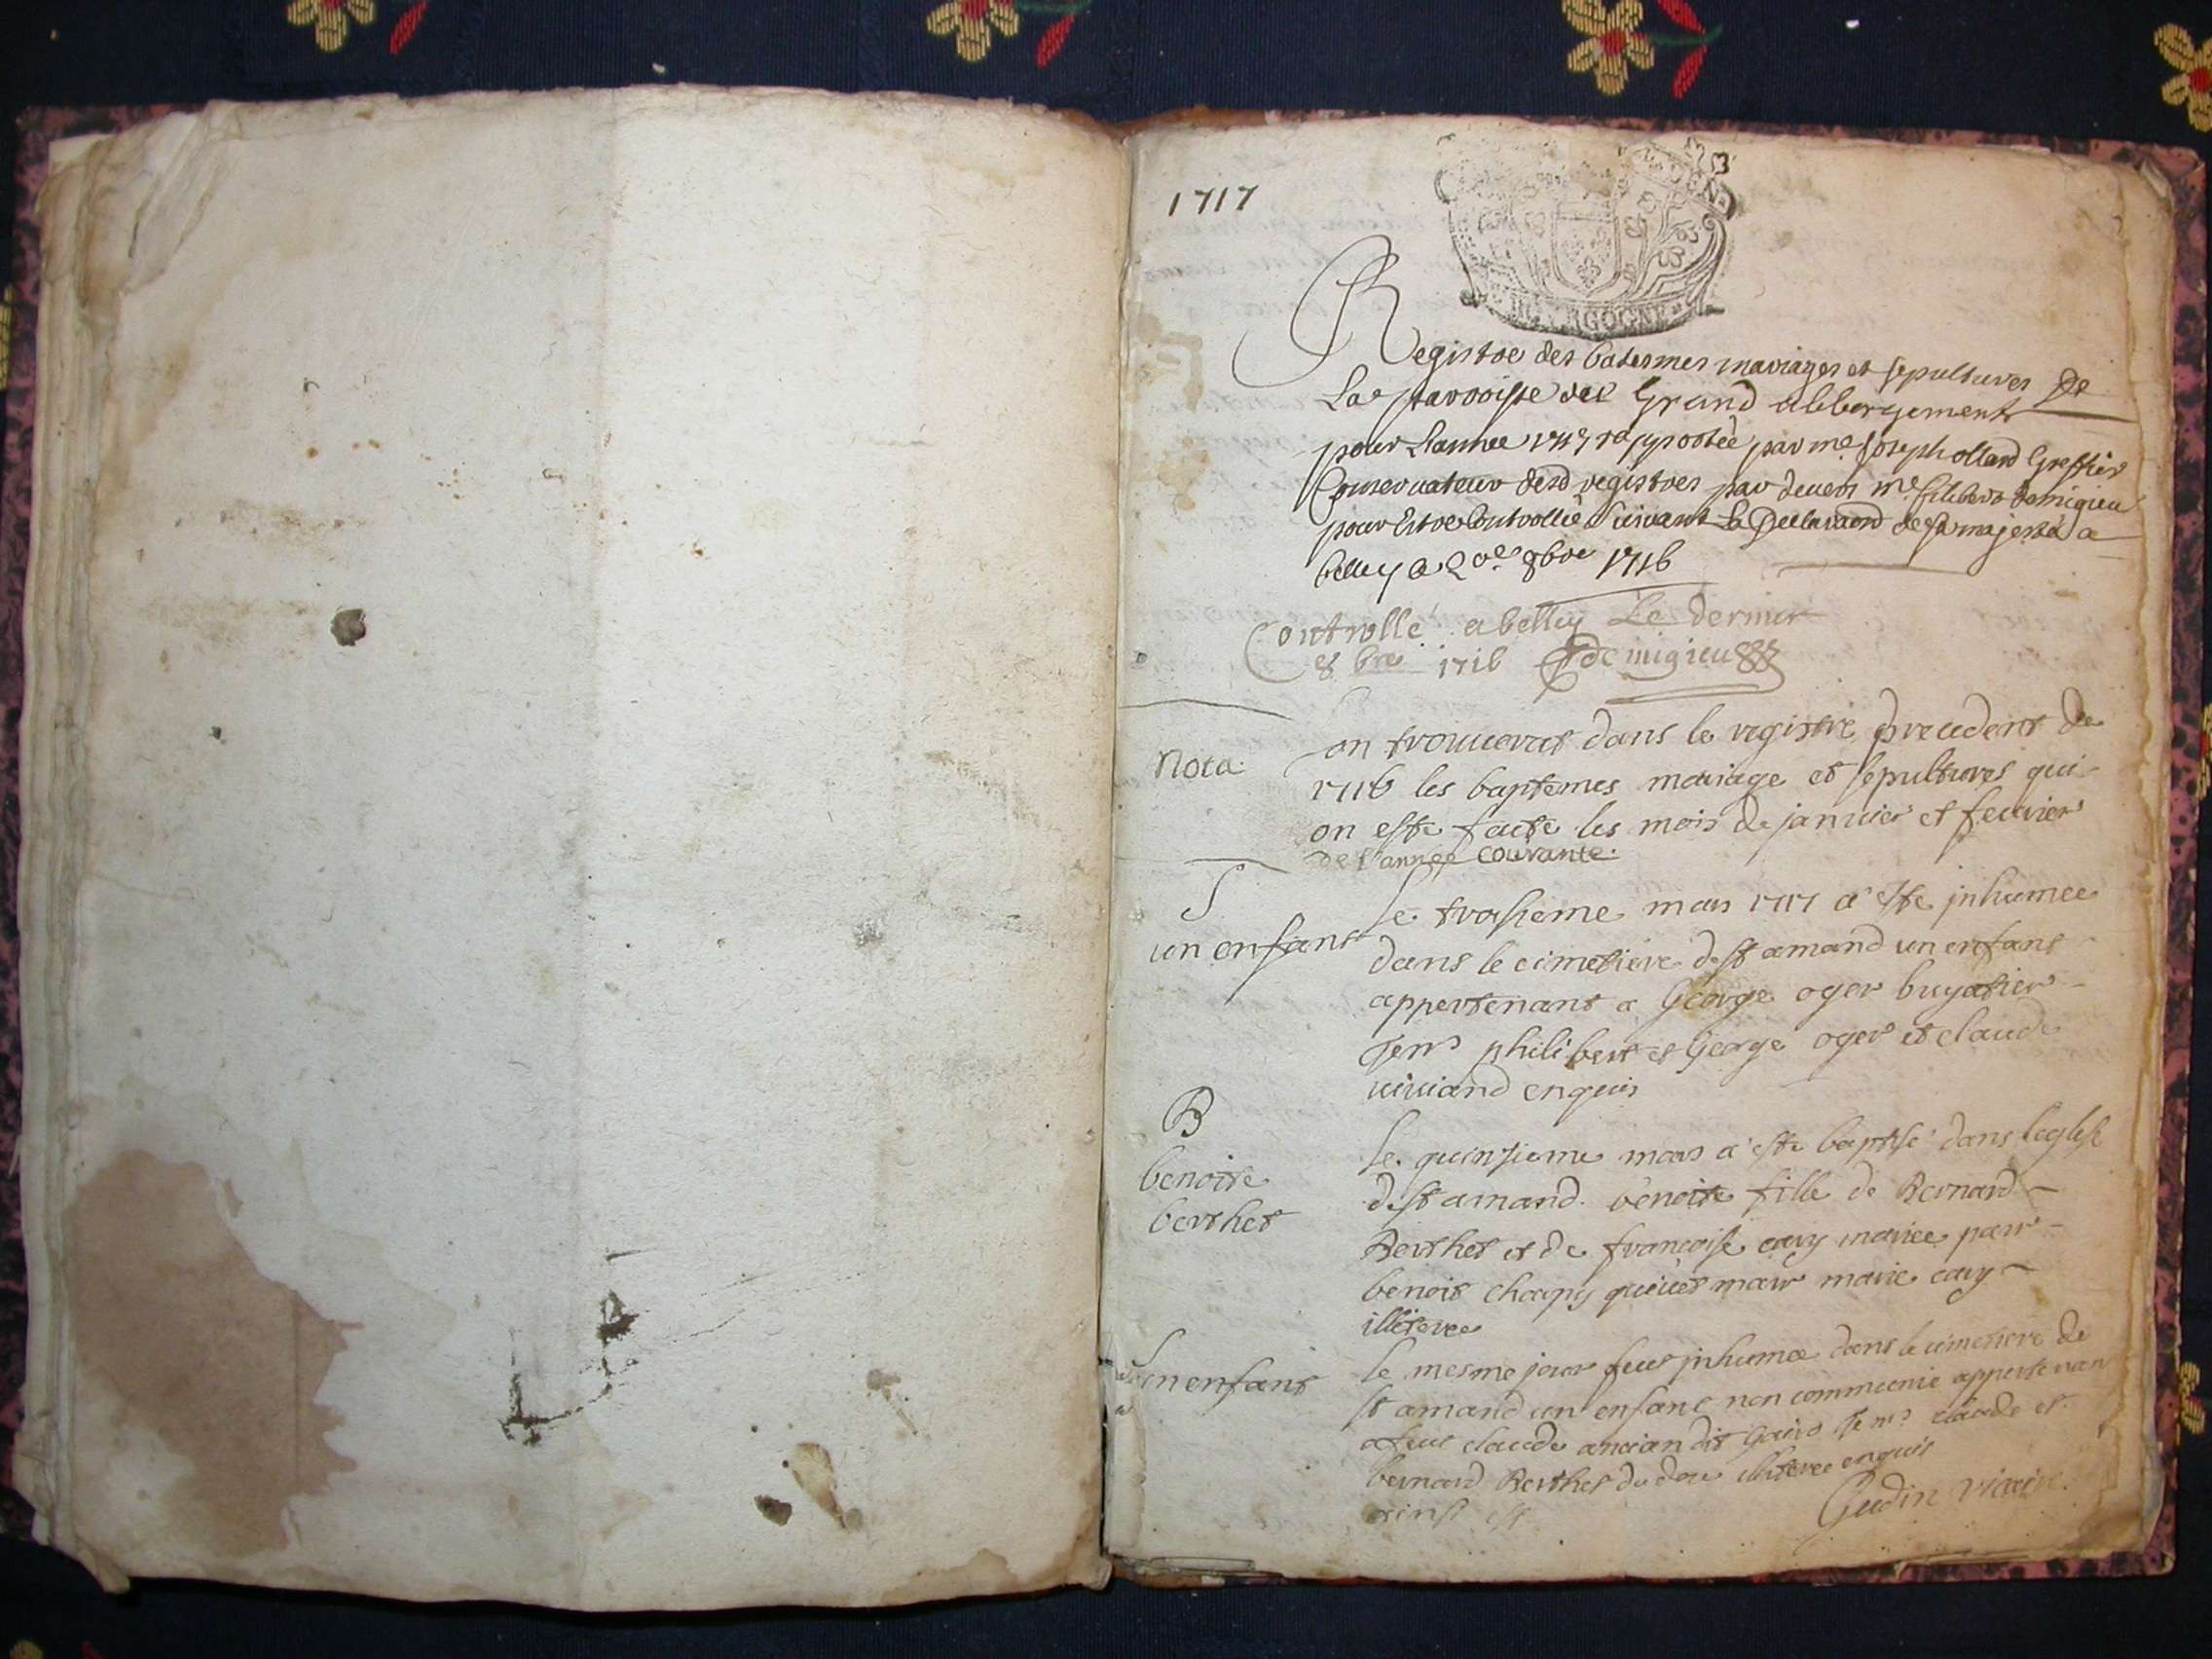 1717
BOVRGOGNE
Registre des batesmes mariages et sepultures de
La parroisse del Grand abbergement
pour Lannee 1717 rapportée par me Joseph olland Greffier
Conservateur desd registres par devers me filibert demigieu
pour Estre Controllé Suivant La Declaraon de sa majesté a
belley le 20e 8bre 1716
Controllé a belley Le dernier
8bre 1716 demigieu
Nota
on trouverat dans le registre precedent de
1716 les baptemes mariage et sepultures qui
on esté faite les mois de janvier et fevrier
de l'année courante.
S
un enfant
le troisieme mars 1717 a esté inhumee
dans le cimetiere de st amand un enfant
appertenant a George oger buyatier
Tems philibert et George oger et claude
viviand enquis
B
benoite
berthet
le quinsieme mars a esté baptisé dans leglise
de st amand benoite fille de Bernard
Berthet et de francoise cary mariee parr
benoit chapy marr marie cary
illiteree
S
un enfant
le mesme jour feut inhumé dans le cimetiere de
st amand un enfant non communié appertenan
a feut claude ancian dit Tems claude et
bernard Berthet illiteree enquis
ainsi est
Gudin vicaire